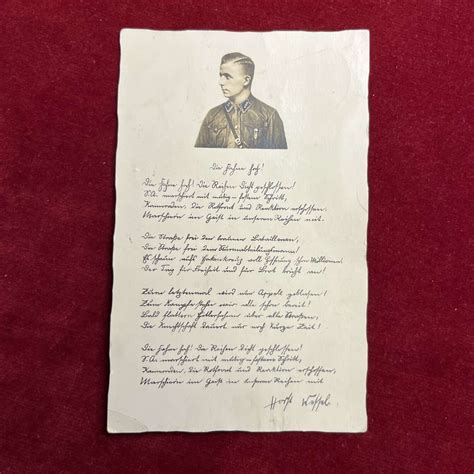 Die Fahne hoch!
Die Fahne hoch! Die Reihen dicht geschlossen!
S.A. marschiert mit mutig-festem Schritt,
Kameraden, die Rotfront und Reaktion erschossen,
Marschieren im Geist in unseren Reihen mit.
Die Straße frei den braunen Bataillonen,
Die Straße frei dem Sturmabteilungsmann!
Es schaun aufs Hakenkreuz voll Hoffnung schon Millionen
Der Tag für Freiheit und für Brot bricht an!
Zum letztenmal wird nun Appell geblasen!
Zum Kampfe stehn wir alle schon bereit!
Bald flattern Hitlerfahnen über alle Straßen,
Die Knechtschaft dauert nur noch kurze Zeit!
Die Fahne hoch! Die Reihen dicht geschlossen!
S.A. marschiert mit mutig-festem Schritt,
Kameraden, die Rotfront und Reaktion erschossen,
Marschieren im Geist in unseren Reihen mit
Horst Wessel.